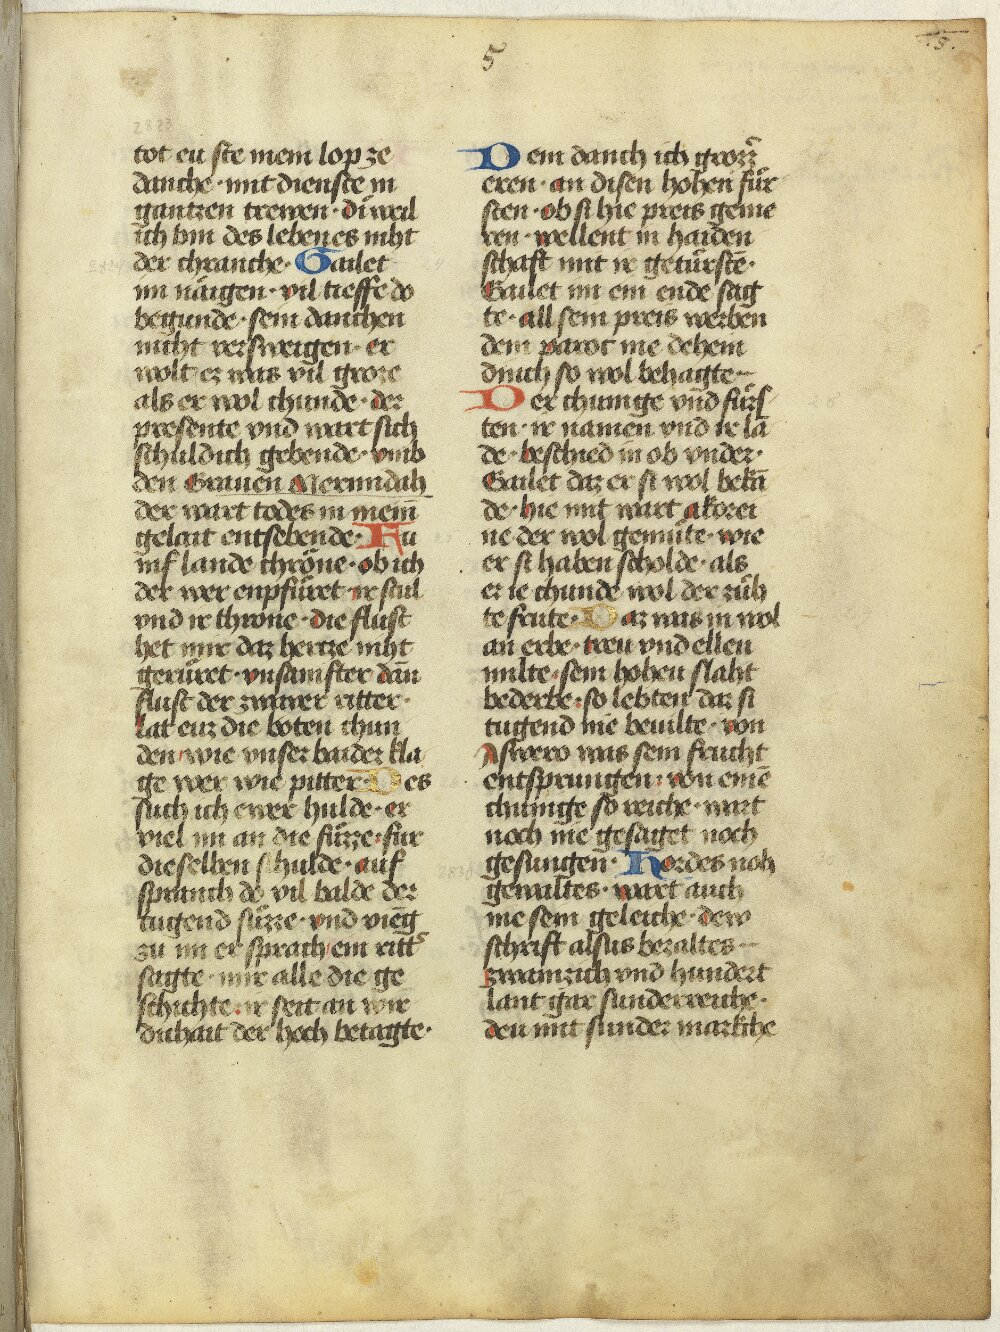 5
.5.
2823
tot eu ste mein lop ze
danche · mit dienste in
gantzen trewen · di weil
ich bin des lebenes niht
der chranche · Gailet
im näigen · vil tieffe do
begunde · sein danchen
nicht versweigen · er
wolt ez was vil groze
als er wol chunde · der
presente vnd wart sich
schuldich gebende · vmb
den Grauen Nerundah
der wart todes in meim
gelait entsebende · Fu
inf lande thröne · ob ich
der wer enpfüret · ir stul
vnd ir throne · die flust
het mir daz hertze niht
gerüret · vnsamfter dān
flust der zwaier ritter ·
lat euz die boten chun
den wie vnser baider kla
ge wer wie pitter · Des
such ich ewer hulde · er
viel im an die füzze · für
die selben schulde · auf
spranch do vil balde der
tugend süzze · vnd vieng
zu im er sprach ein ritt̄
sagte · mir alle die ge
schichte · ir seit an wir
dichait der hoch betagte ·
Dem danch ich grozz̄
eren · an disen hohen für
sten · ob si hie preis geme
ren · wellent in haiden
schaft mit ir getürstē ·
Gailet im ein ende sag
te · all sein preis werben
dem parot nie dehein
dinch so wol behagte —
Der chunige vnd fürs
ten · ir namen vnd ir lā
de · beschied in ob vnder ·
Gailet daz er si wol bekā
de · hie mit wart akorei
ne · der wol gemüte · wie
er si haben scholde · als
ez ie chunde wol der züh
te frute · Daz was in wol
an erbe · treu vnd ellen
milte · sein hohen slaht
bederbe · so lebten daz si
tugend nie beuilte · von
Aswero was sein frucht
entsprungen · von einē
chunige so reiche · wart
noch nie gesaget noch
gesungen · Kordes noh
gewaltes · wart auch
nie sein geleiche · dew
schrift alsus bezaltes —
zwainzich vnd hundert
lant gar sunderreiche ·
den mit sunder markche